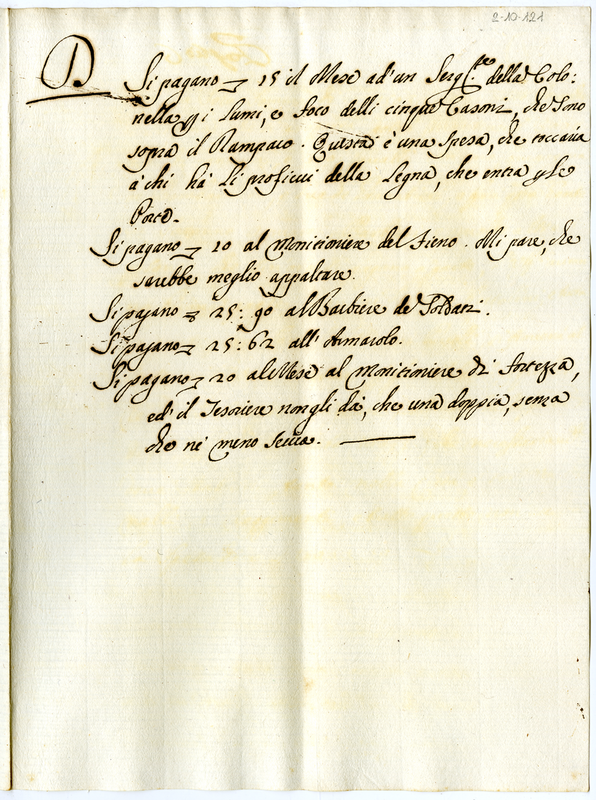 2-10-121
D
Si pagano 15 il Mese ad'un Serg.te della Colo:
nella p i lumi, e foco delli cinque Casoni, che sono
sopra il Rampar. Questa è una spesa, che toccaria
à chi hà li proficui della Legna, che entra p le
Porte.
Si pagano 20 al Monitioniere del Fieno. Mi pare, che
sarebbe meglio appaltare.
Si pagano 25: 90 al Barbiere de Soldati.
Si pagano 25: 62 all' Armarolo.
Si pagano 20 al Mese al Monitioniere di fortezza,
ed' il Tesoriere non gli dà, che una doppia, senza
che nè meno